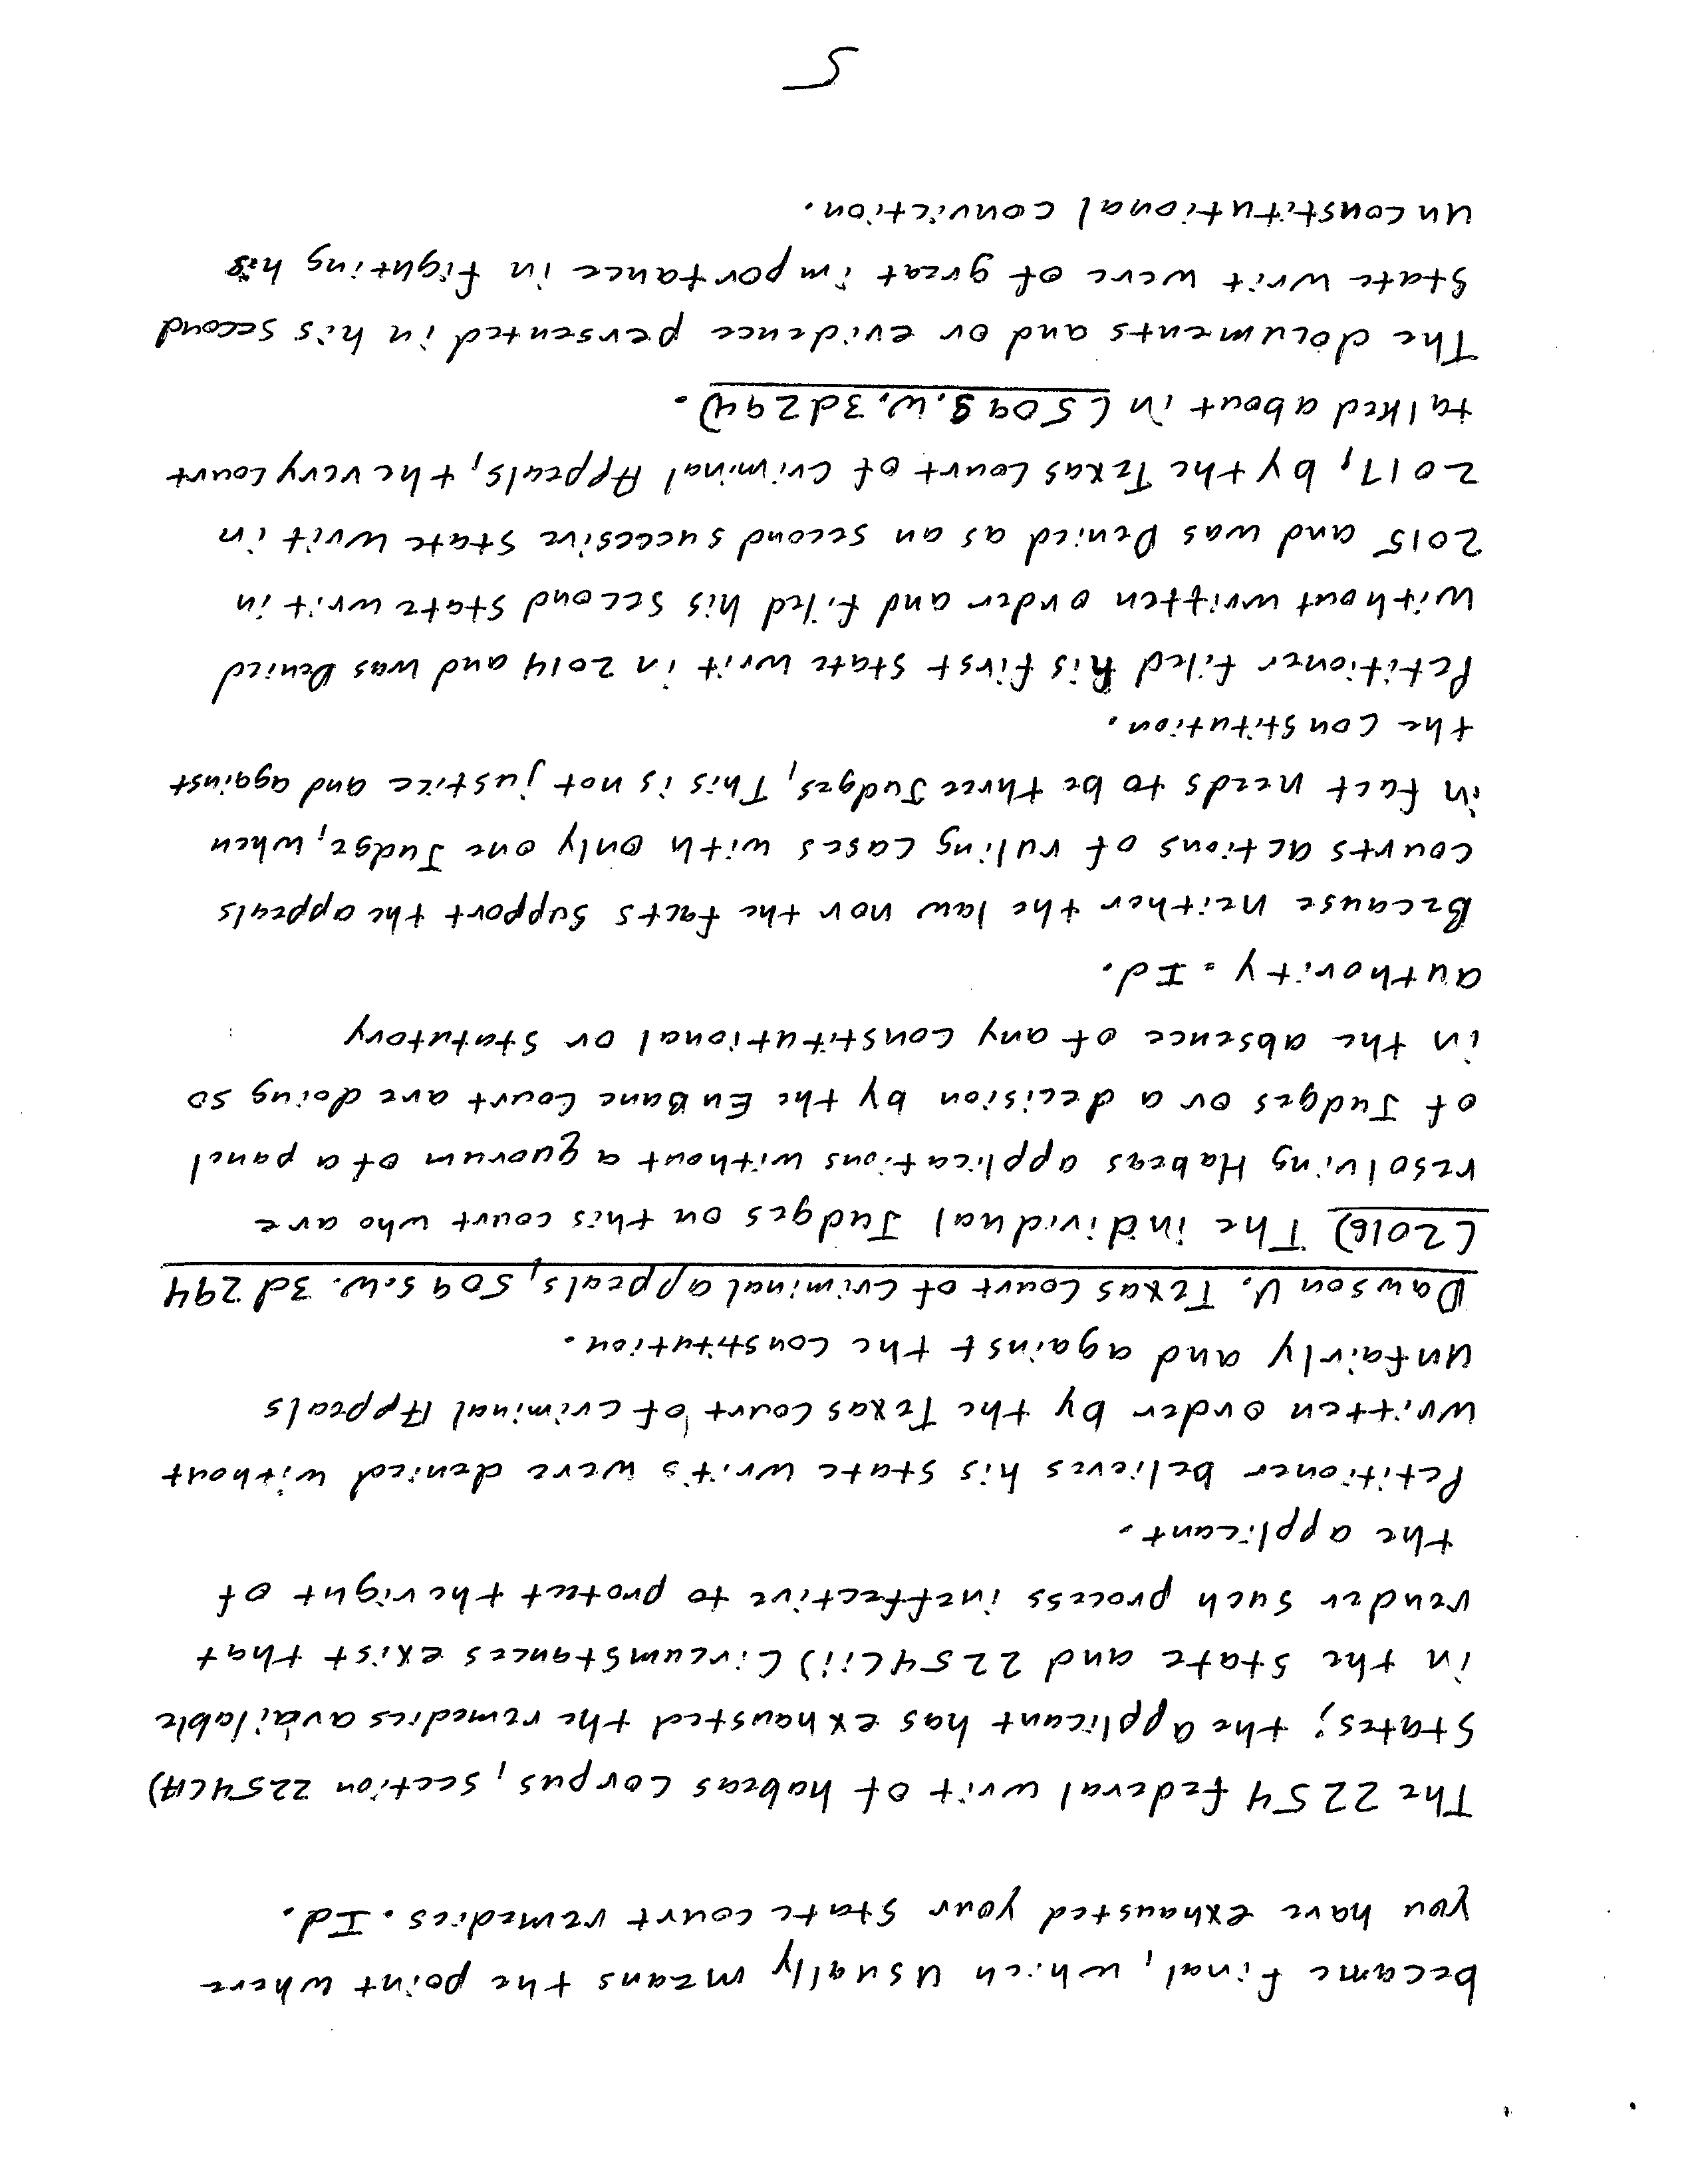 became final, which usually means the point where
you have exhausted your state court remedies. Id.
The 2254 federal writ of habeas corpus, section 2254(A)
States; the applicant has exhausted the remedies available
in the State and 2254(ii) Circumstances exist that
render such process ineffective to protect the right of
the applicant.
Petitioner believes his state writ's were denied without
written order by the Texas Court of Criminal Appeals
unfairly and against the constitution.
Dawson V. Texas Court of Criminal appeals, 509 S.W. 3d 294
(2016) The individual Judges on this court who are
resolving Habeas applications without a quorum of a panel
of Judges or a decision by the EnBanc Court are doing so
in the absence of any constitutional or statutory
authority. Id.
Because neither the law nor the facts support the appeals
courts actions of ruling cases with only one Judge, when
in fact needs to be three Judges, This is not justice and against
the constitution.
Petitioner filed his first state writ in 2014 and was Denied
without written order and filed his second state writ in
2015 and was Denied as an second succesive state writ in
2017, by the Texas Court of Criminal Appeals, the very court
talked about in (509 S.W. 3d 294).
The documents and or evidence persented in his second
state writ were of great importance in fighting his
unconstitutional conviction.
5